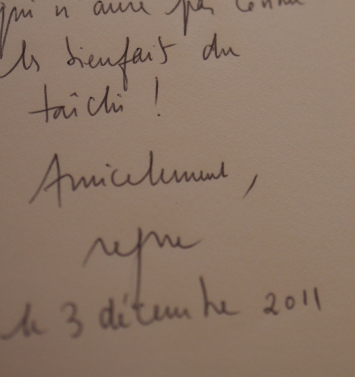 qui n'aura pas connu
les bienfait du
taîchi !
Amicalement,
le 3 décembre 2011